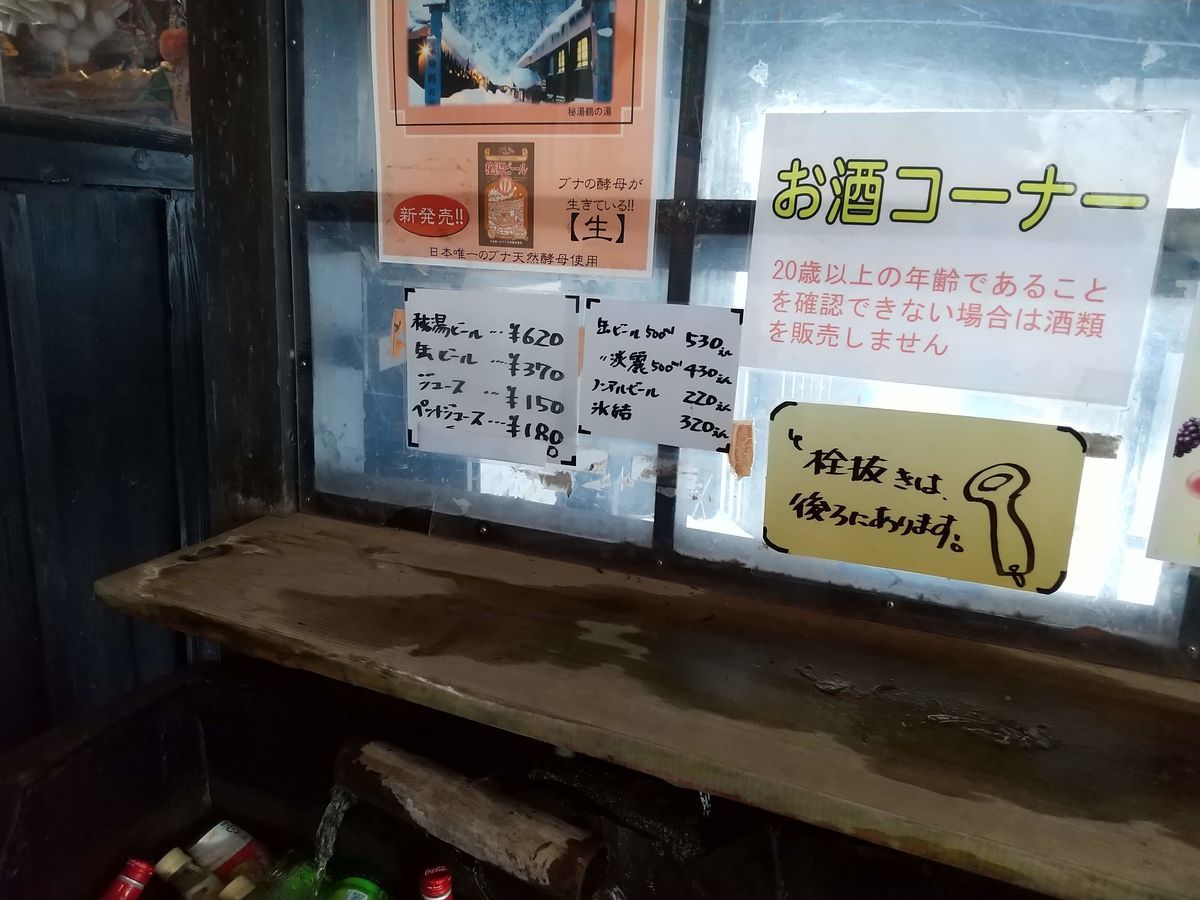 秘湯鶴の湯
秘湯ビール
ブナの酵母が
生きている!!
新発売!!
【生】
日本唯一のブナ天然酵母使用
お酒コーナー
20歳以上の年齢であること
を確認できない場合は酒類
を販売しません
秘湯ビール…¥620
缶ビール…¥370
ジュース…¥150
ペットジュース…¥180
缶ビール500ml 530えん
〃淡麗500ml 430えん
ノンアルビール 220えん
氷結 320えん
栓抜きは、
後ろにあります。